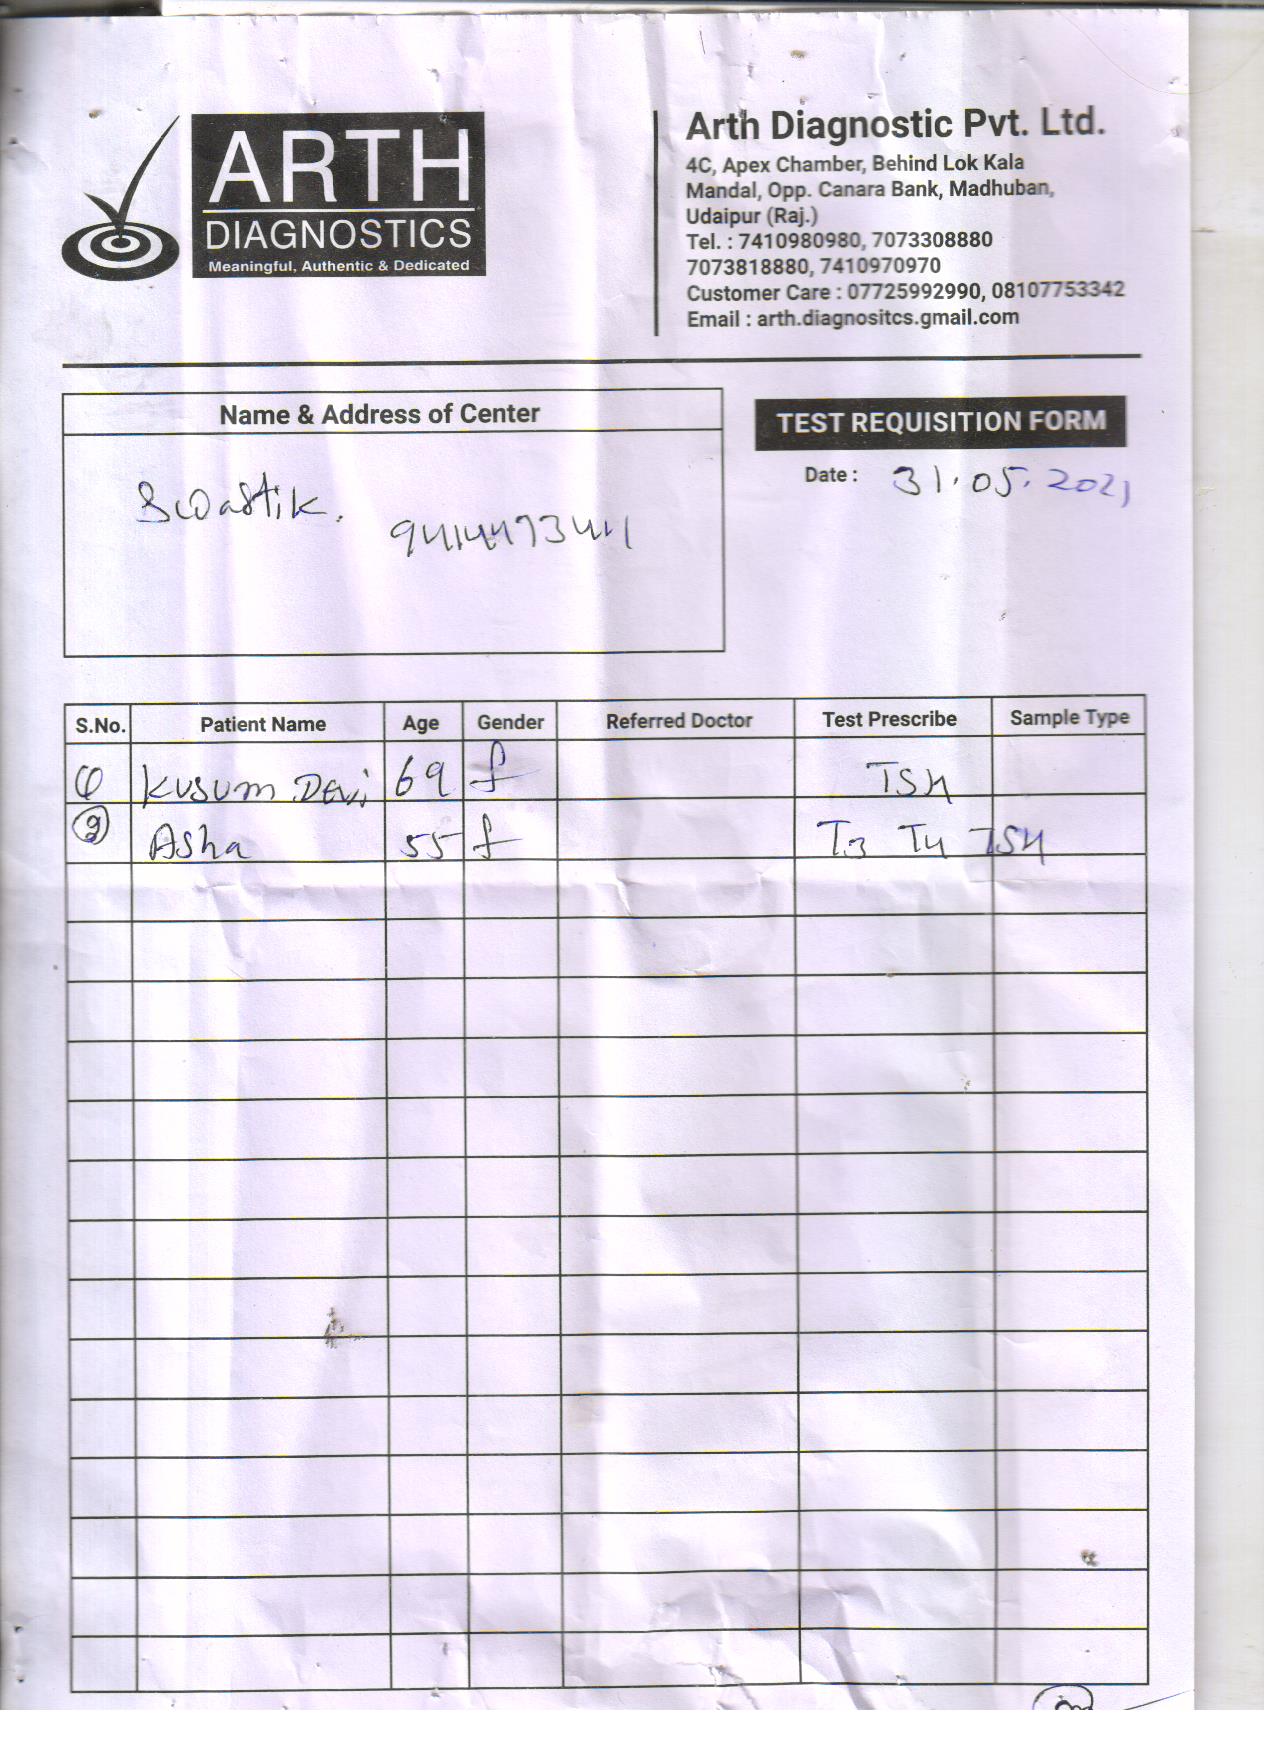 ARTH
DIAGNOSTICS
Meaningful, Authentic & Dedicated
Arth Diagnostic Pvt. Ltd.
4C, Apex Chamber, Behind Lok Kala
Mandal, Opp. Canara Bank, Madhuban,
Udaipur (Raj.)
Tel. : 7410980980, 7073308880
7073818880, 7410970970
Customer Care : 07725992990, 08107753342
Email : arth.diagnositcs.gmail.com
Name & Address of Center
Swastik.
TEST REQUISITION FORM
Date : 31.05.2021
S.No. Patient Name Age Gender Referred Doctor Test Prescribe Sample Type
Kusum Devi 69 f TSH
2 Asha 55 f T3 T4 TSH